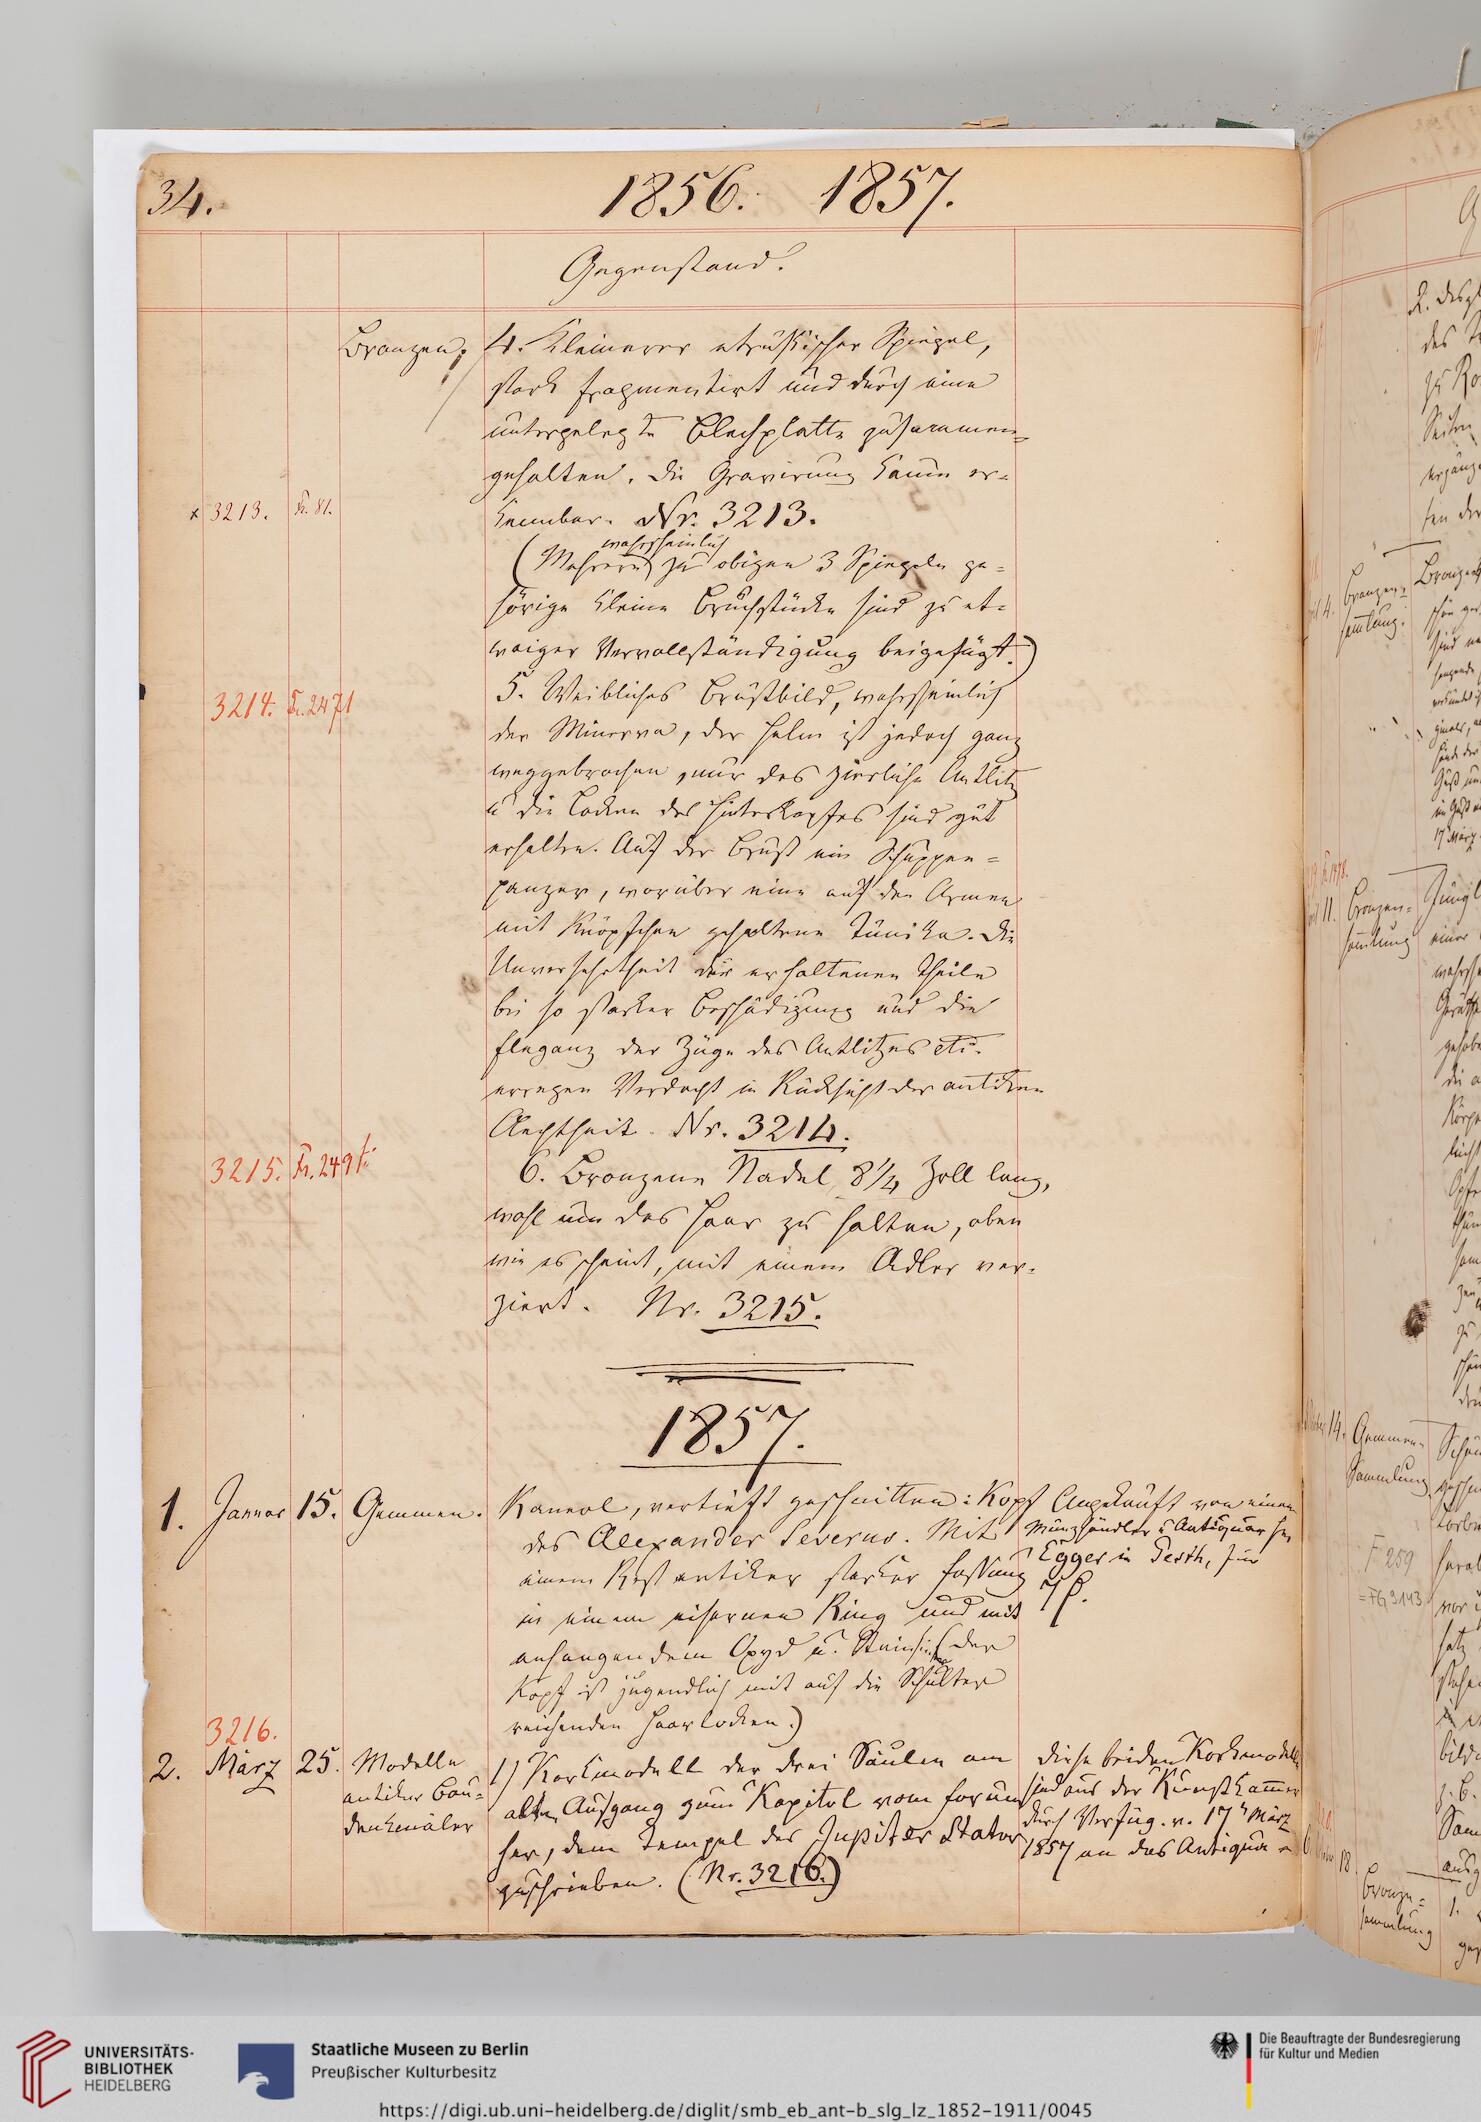 34.
1856. 1857.
Gegenstand.
Bronzen.
4. Kleinerer etruskischer Spiegel,
stark fragmentirt und durch eine
untergelegte Blechplatte zusammen-
gehalten. Die Gravirung kaum er-
× 3213. Fr. 81.
kennbar. Nr. 3213.
wahrscheinlich
(Mehrere zu obigen 3 Spiegeln ge-
hörige kleine Bruchstücke sind zu et-
waiger Vervollständigung beigefügt.)
3214. Fr. 2471
5. Weibliches Brustbild, wahrscheinlich
der Minerva, der Helm ist jedoch ganz
weggebrochen, nur das zierliche Antlitz
u die Locken des Hinterkopfes sind gut
erhalten. Auf der Brust ein Schuppen-
panzer, worüber eine auf den Armen
mit Knöpfchen gehaltene Tunika. Die
Unversehrtheit der erhaltenen Theile
bei so starker Beschädigung und die
Eleganz der Züge des Antlitzes etc.
erregen Verdacht in Rücksicht der antiken
Aechtheit. Nr. 3214.
3215. Fr. 249
6. Bronzene Nadel 8 1/4 Zoll lang,
wohl um das Haar zu halten, oben
wie es scheint, mit einem Adler ver-
ziert. Nr. 3215.
1857.
1. Januar 15. Gemmen.
Kaneol, vertieft geschnitten: Kopf
des Alexander Severus. Mit
einem Rest antiker starker Fassung
in einem eisernen Ring und mit
anhangendem Oxyd u. (der
Kopf ist jugendlich mit auf die Schulter
reichenden Haarlocken.)
Angekauft von einem
Münzhändler u Antiquar
Egger in Pesth, für
7
3216.
2. März 25. Modelle
antiker Bau-
denkmäler
1) Korkmodell der drei Säulen am
alten Aufgang zum Kapitol vom Forum
her, dem Tempel des Jupiter Stator
zuschrieben. (Nr. 3216.)
diese beiden Korkmodelle
sind aus der Kunstkammer
durch Verfüg. v. 17ⁿ März
1857 an das Antiquar
UNIVERSITÄTS-
BIBLIOTHEK
HEIDELBERG
Staatliche Museen zu Berlin
Preußischer Kulturbesitz
Die Beauftragte der Bundesregierung
für Kultur und Medien
https://digi.ub.uni-heidelberg.de/diglit/smb_eb_ant-b_slg_lz_1852-1911/0045